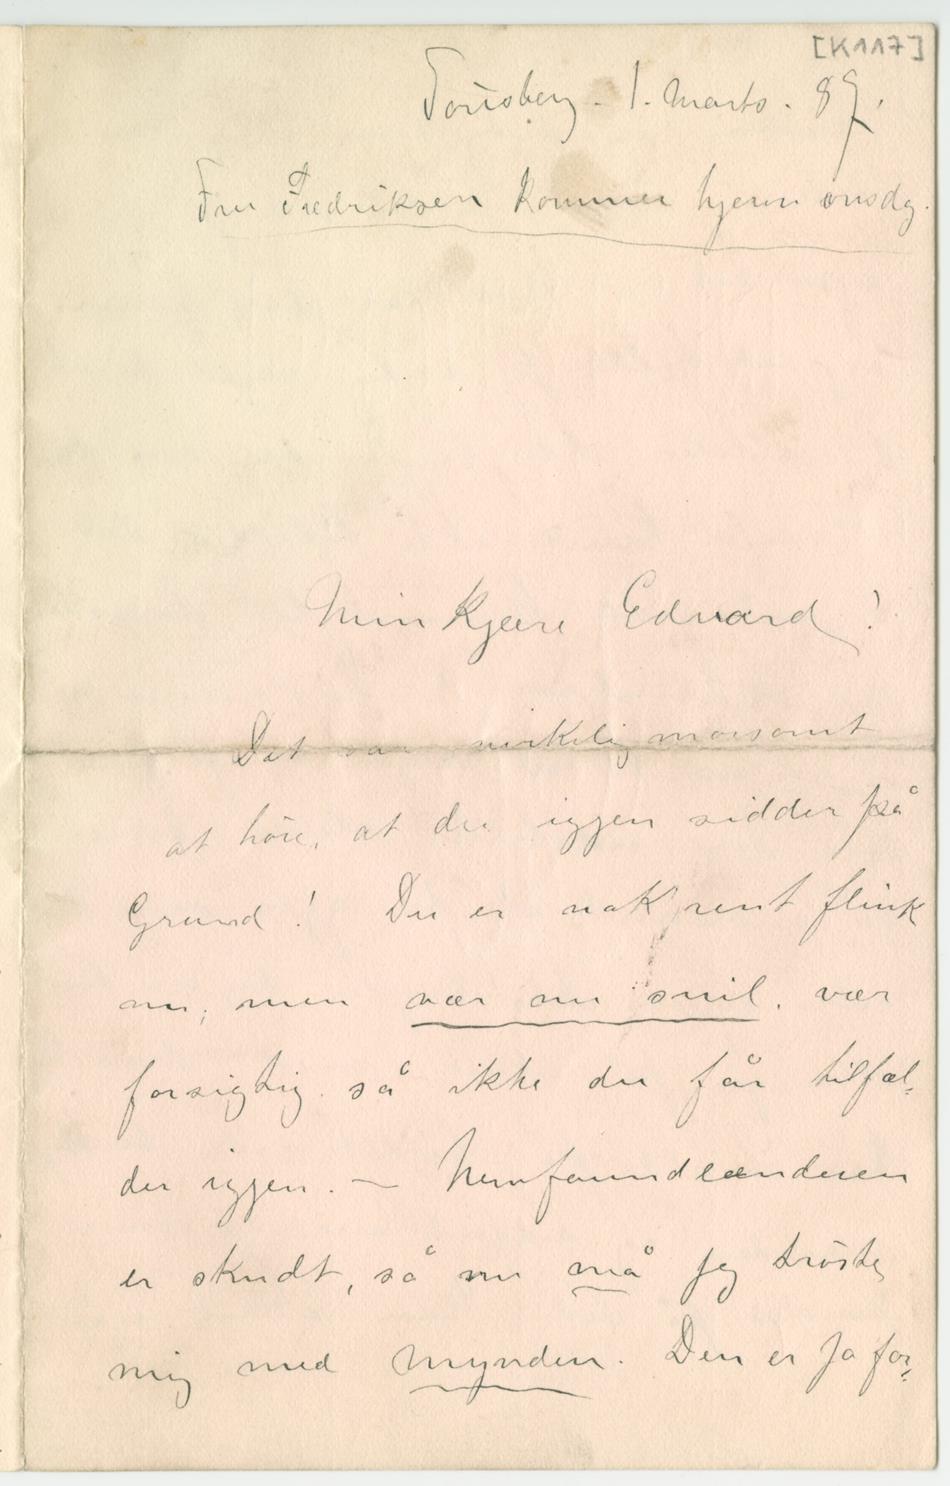 [K117]
Tönsberg. 1. Marts. 89.
Fru Fredriksen kommer hjem onsdg.
Min kjære Edvard!
Det var virkelig morsomt
at höre, at du igjen sidder på
Grand! Du er nok rent flink
nu, men vær nu snil, vær
forsigtig så ikke du får tilfæl-
der igjen. — Newfoundlænderen
er skudt, så nu må jeg tröste
mig med Mynden. Den er jo for-